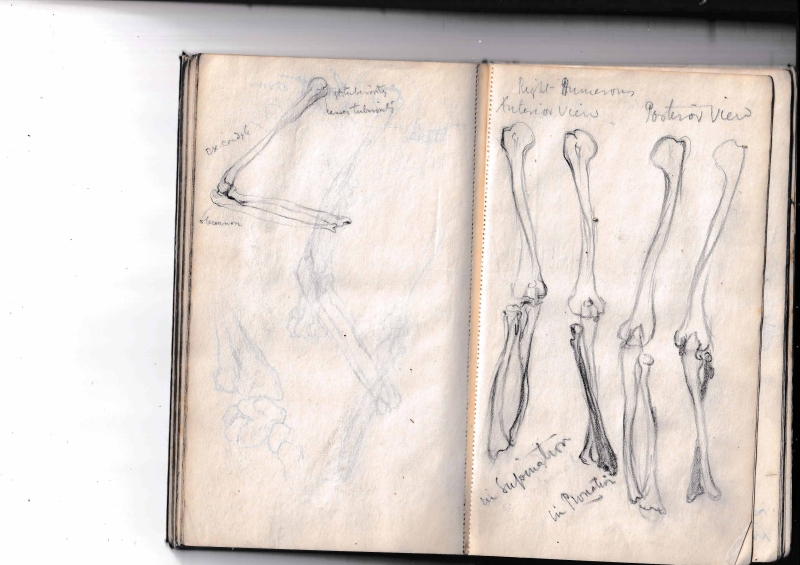 gt tuberosity
lesser tuberosity
ex condyle
olecranon
Right Humerous
Anterior View
Posterior View
in Supination
in Pronation